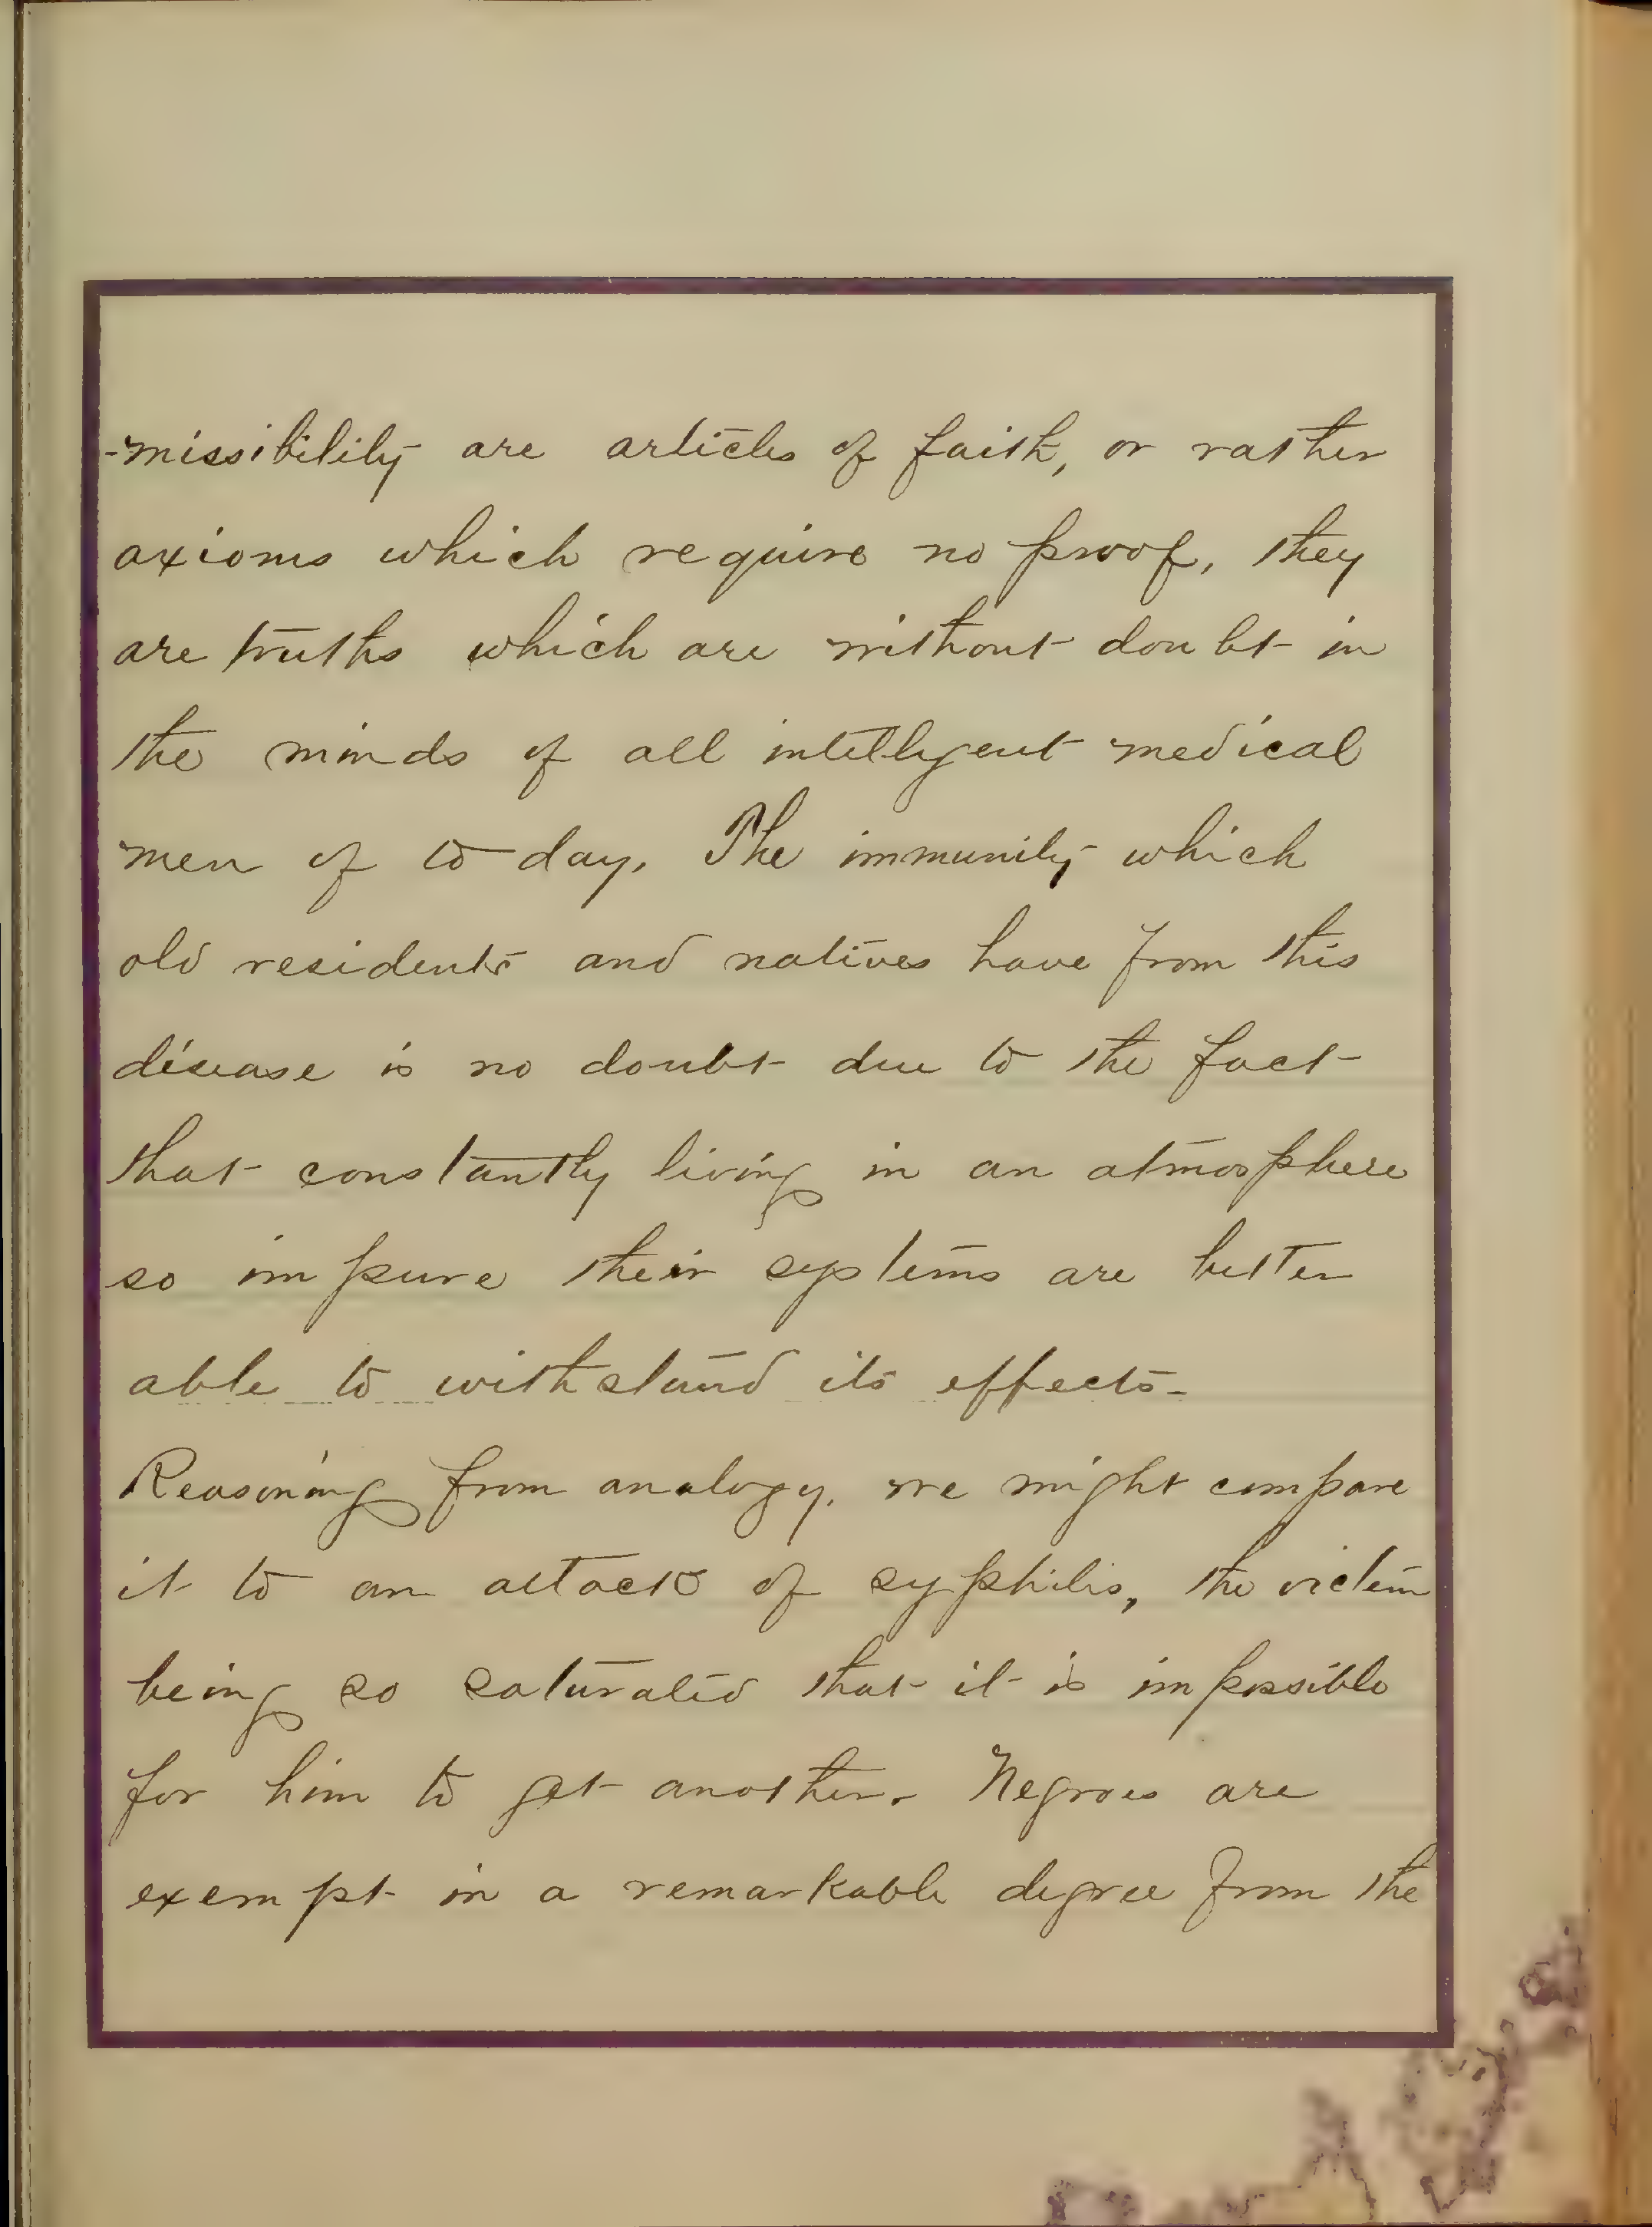 -missibility are articles of faith, or rather
axioms which require no proof, they
are truths which are without doubt in
the minds of all intelligent medical
men of to day. The immunity which
old residents and natives have from this
disease is no doubt due to the fact
that constantly living in an atmosphere
so impure their systems are better
able to withstand its effects-
Reasoning from analogy, we might compare
it to an attack of syphilis, the victim
being so saturated that it is impossible
for him to get another. Negroes are
exempt in a remarkable degree from the